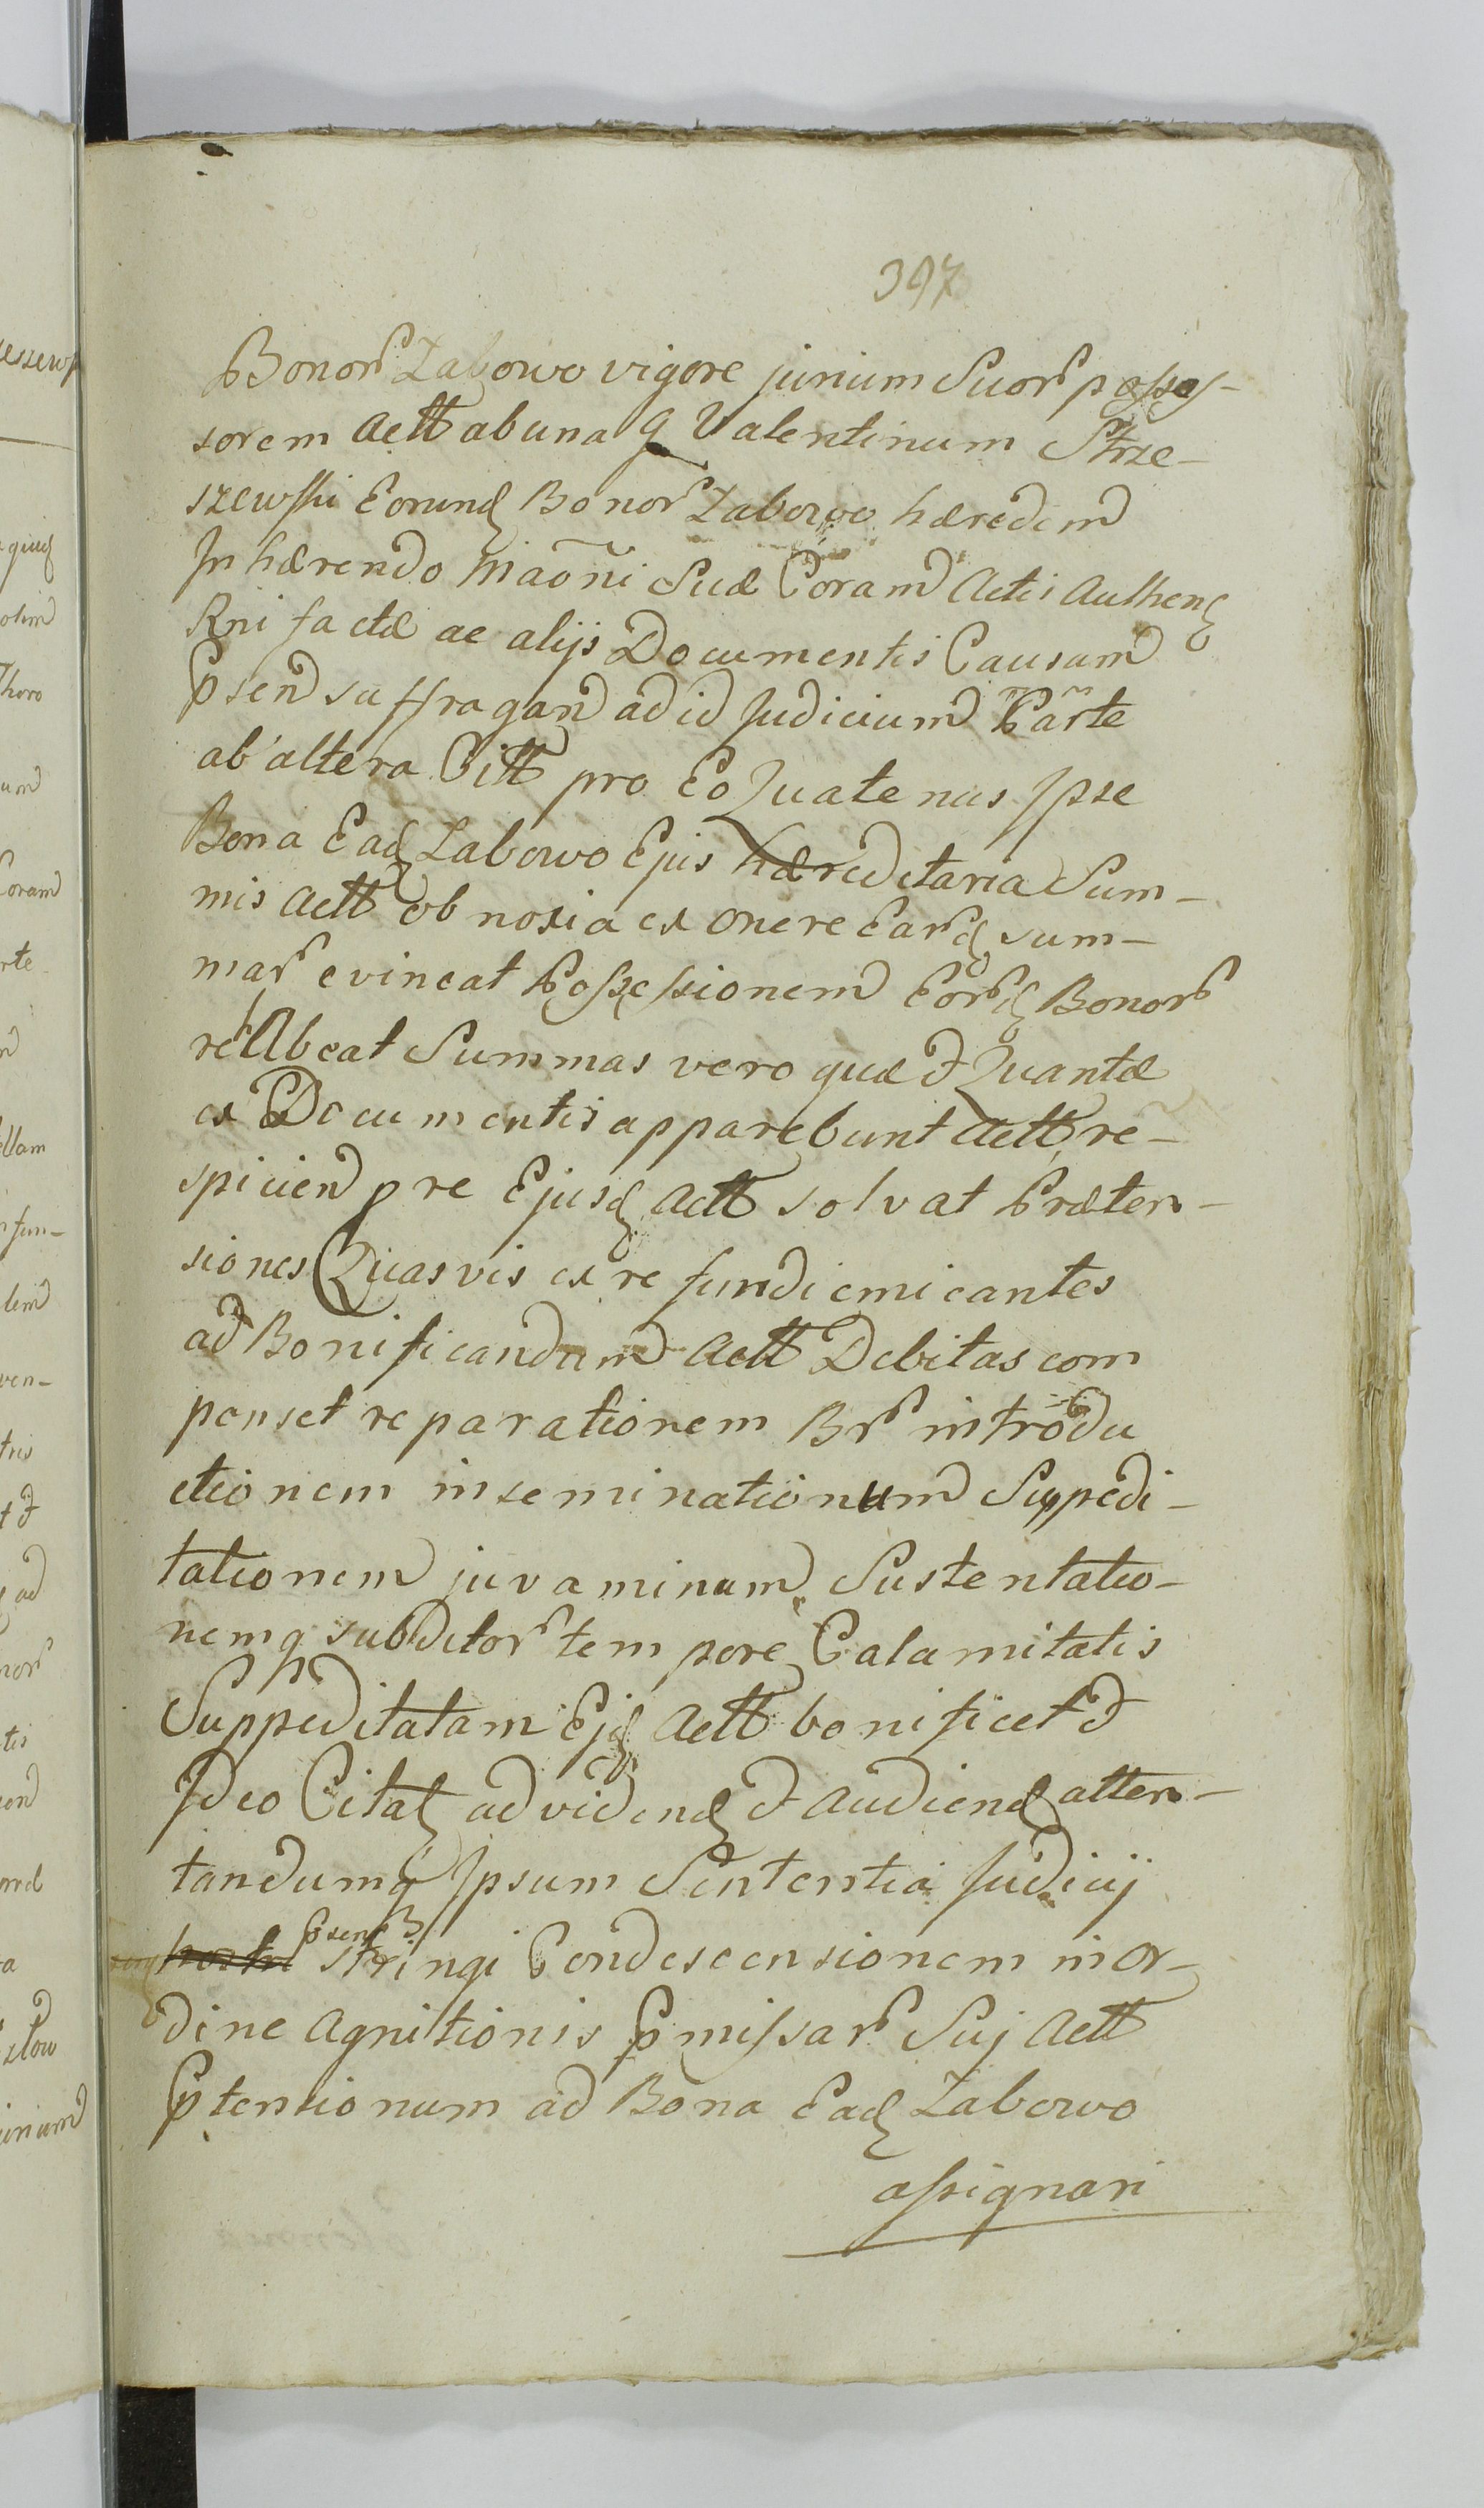 397
Bonor Zabowo vigore jurium Suor posses-
sorem Actt ab una g Valentinum Strze-
szewski Eorund Bonor Zabowo hæredem
Inhærendo Maōni Suæ Coram Actis Authen
Rni factæ ac alijs Documentis Causam
psen suffragan ad id Judicium Parte
ab altera Citt pro Eo Quatenus Ipse
Bona Ead Zabowo Ejus hæreditaria Sum-
mis Actt obnoxia ex onere Eard sum-
mar evincat Possessionem Eord Bonor
rehabeat Summas vero quæ et Quantæ
ex Documentis apparebunt Actt re-
spicien pre Ejusd Actt solvat Præten-
siones Quasvis ex re fundi emicantes
ad Bonificandum Actt Debitas com
penset reparationem Br introdu
ctionem inseminationum Suppedi-
tationem juvaminum Sustentatio-
nemq subditor tempore Calamitatis
Suppeditatam Ejd Actt bonificet et
Ideo Citat ad vidend et Audiend atten-
tandumq Ipsum Sententia Judicij
psent stringi Condescensionem in or-
dine Agnitionis pmissar Suj Actt
ptensionum ad Bona Ead Zabowo
assignari